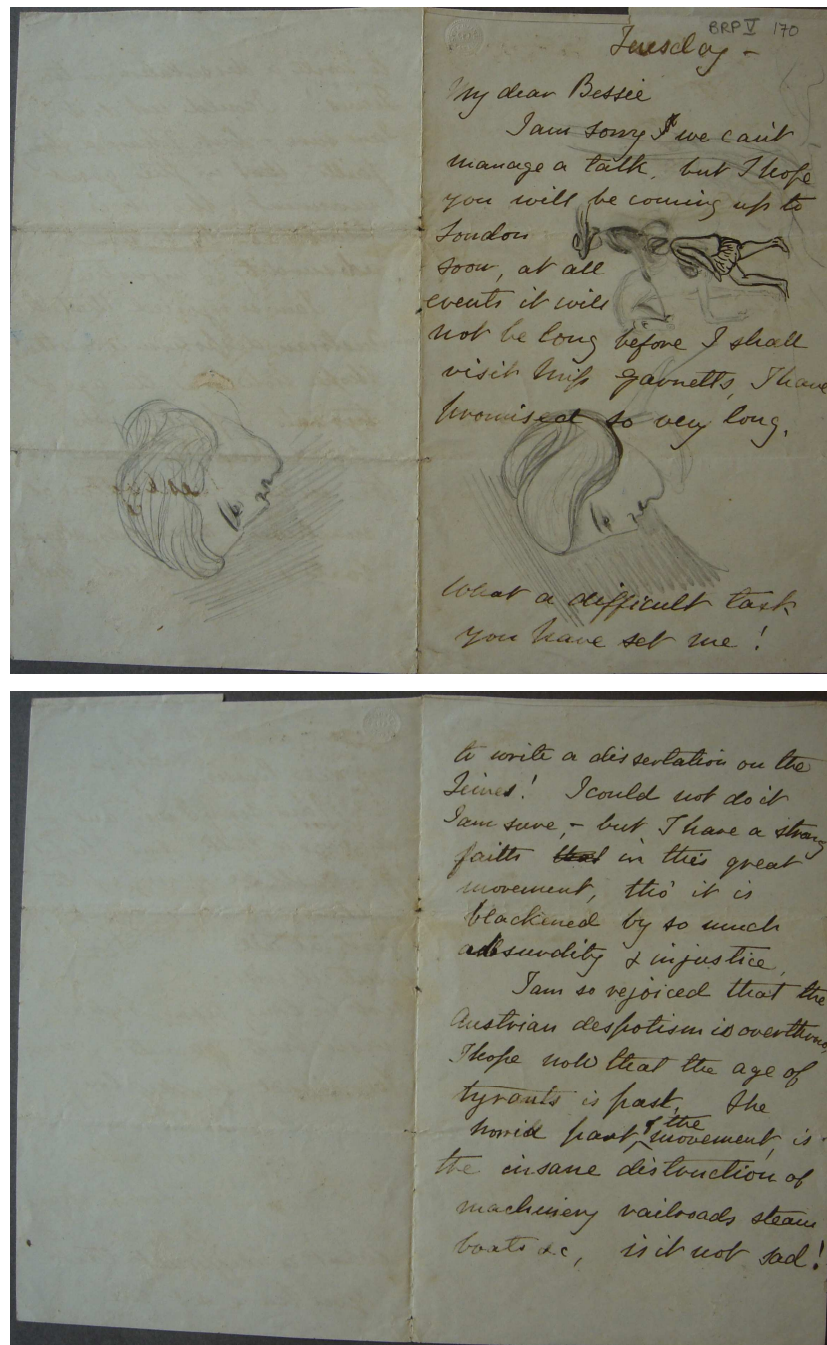 BRP V 170
Tuesday –
My dear Bessie
I am sorry we can't
manage a talk, but I hope
you will be coming up to
London
soon, at all
events it will
not be long before I shall
visit Miss Garnetts, I have
promised so very long.
What a difficult task
you have set me!
to write a dissertation on the
Times! I could not do it
I am sure, – but I have a strong
faith that in this great
movement, tho' it is
blackened by so much
absurdity & injustice,
I am so rejoiced that the
Austrian despotism is overthrown,
I hope now that the age of
tyrants is past. The
horrid part of the movement, is
the insane distruction of
machinery railroads steam
boats &c, is it not sad!